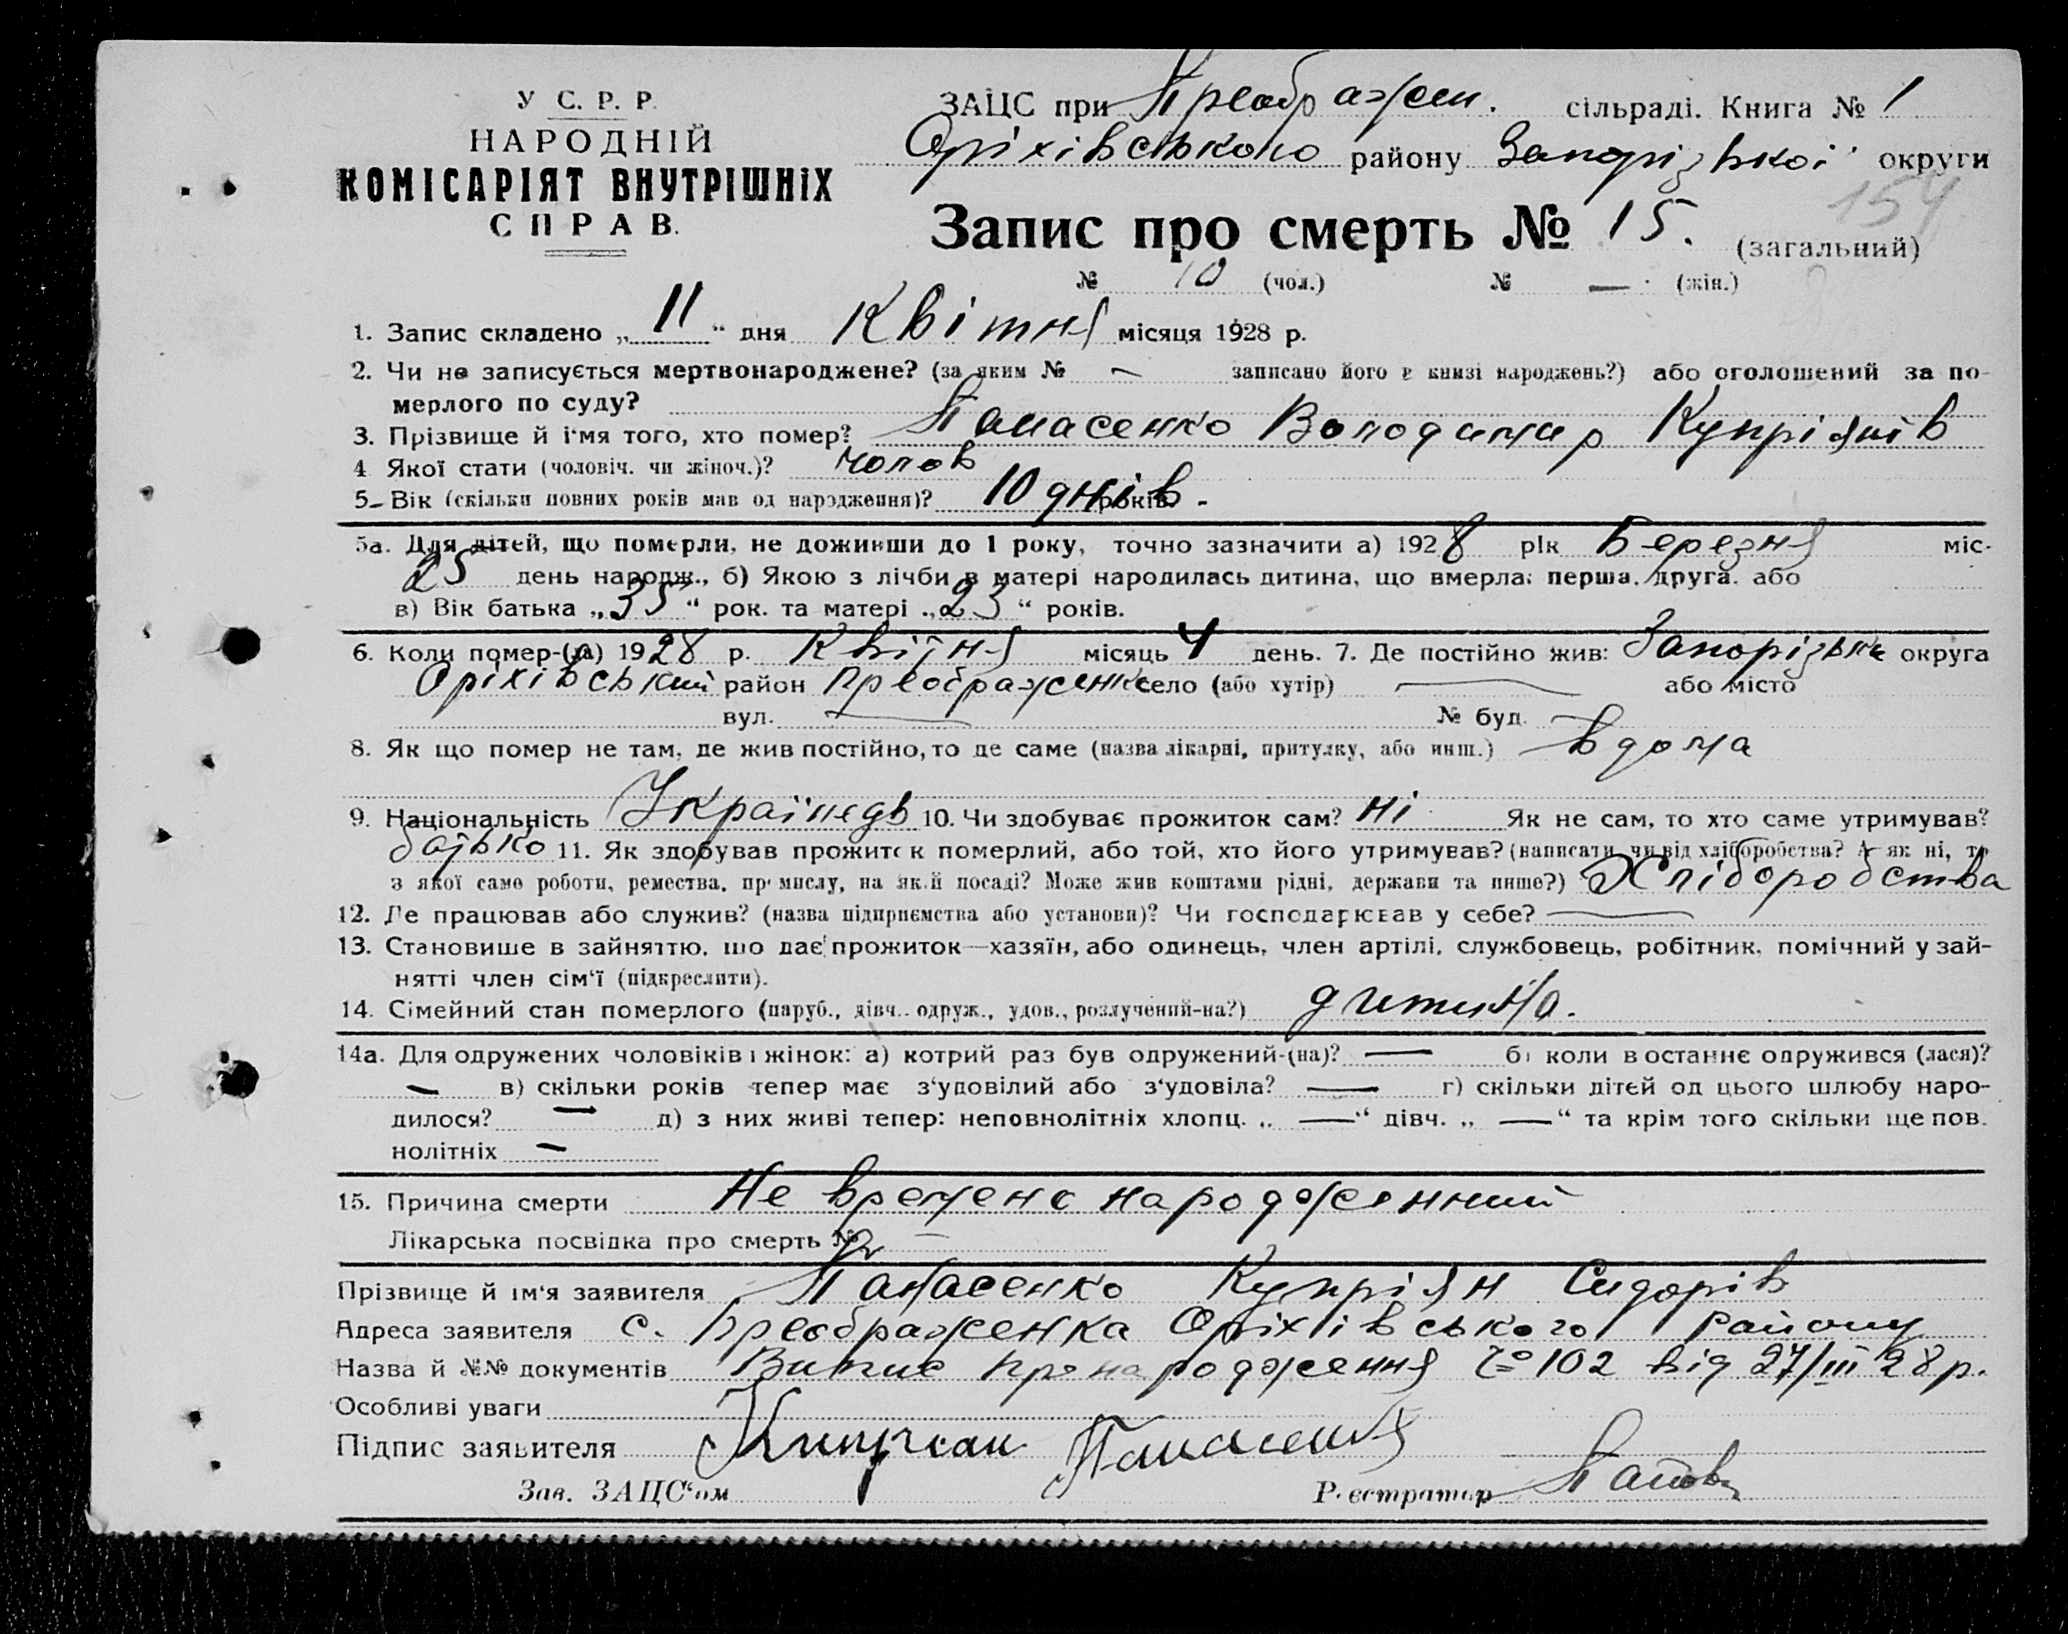 У С. Р. Р.
НАРОДНІЙ
КОМІСАРІЯТ ВНУТРІШНІХ
СПРАВ.
ЗАЦС при Преображен. сільраді. Книга № 1
Оріхівського району Запорізької округи
154
Запис про смерть № 15. (загальний)
№ 10 (чол.) № — (жін.)
1. Запис складено „ 11 “ дня Квітня місяця 1928 р.
2. Чи не записується мертвонароджене? (за яким № — записано його в книзі народжень?) або оголошений за по-
мерлого по суду?
3. Прізвище й і'мя того, хто помер? Панасенко Володимир Купріянів
4 Якої стати (чоловіч. чи жіноч.)? чолов
5. Вік (скільки повних років мав од народження)? 10 днів років. -
5а. Для дітей, що померли, не доживши до 1 року, точно зазначити а) 1928 рік Березня міс.
25 день народж., б) Якою з лічби в матері народилась дитина, що вмерла: перша, друга, або
в) Вік батька „35“ рок. та матері „23“ років.
6. Коли помер-(ла) 1928 р. Квітня місяць 4 день. 7. Де постійно жив: Запорізька округа
Оріхівський район Преображенка село (або хутір) — або місто
вул. — № буд.
8. Як що помер не там, де жив постійно, то де саме (назва лікарні, притулку, або инш.) вдома
9. Національність Українець 10. Чи здобуває прожиток сам? ні Як не сам, то хто саме утримував?
батько 11. Як здобував прожиток померлий, або той, хто його утримував? (написати, чи від хліборобства? А як ні, то
з якої саме роботи, ремества, промислу, на якій посаді? Може жив коштами рідні, держави та инше?) Хліборобства
12. Де працював або служив? (назва підприємства або установи)? Чи господарював у себе? —
13. Становище в зайняттю, що дає прожиток—хазяїн, або одинець, член артілі, службовець, робітник, помічний у зай-
нятті член сім'ї (підкреслити).
14. Сімейний стан померлого (паруб., дівч., одруж., удов., розлучений-на?) дитина.
14а. Для одружених чоловіків і жінок: а) котрий раз був одружений-(на)? — б) коли в останнє одружився (лася)?
— в) скільки років тепер має з'удовілий або з'удовіла? — г) скільки дітей од цього шлюбу наро-
дилося? — д) з них живі тепер: неповнолітніх хлопц. „ —“ дівч. „ —“ та крім того скільки ще пов.
нолітніх —
15. Причина смерти Не времено народженний
Лікарська посвідка про смерть № —
Прізвище й ім'я заявителя Панасенко Купріян Сидорів
Адреса заявителя с. Преображенка Оріхівського району
Назва й №№ документів Випис про народження № 102 від 27/III 28 р.
Особливі уваги
Підпис заявителя Киприан Панасенко
Зав. ЗАЦС'ом Реєстратор